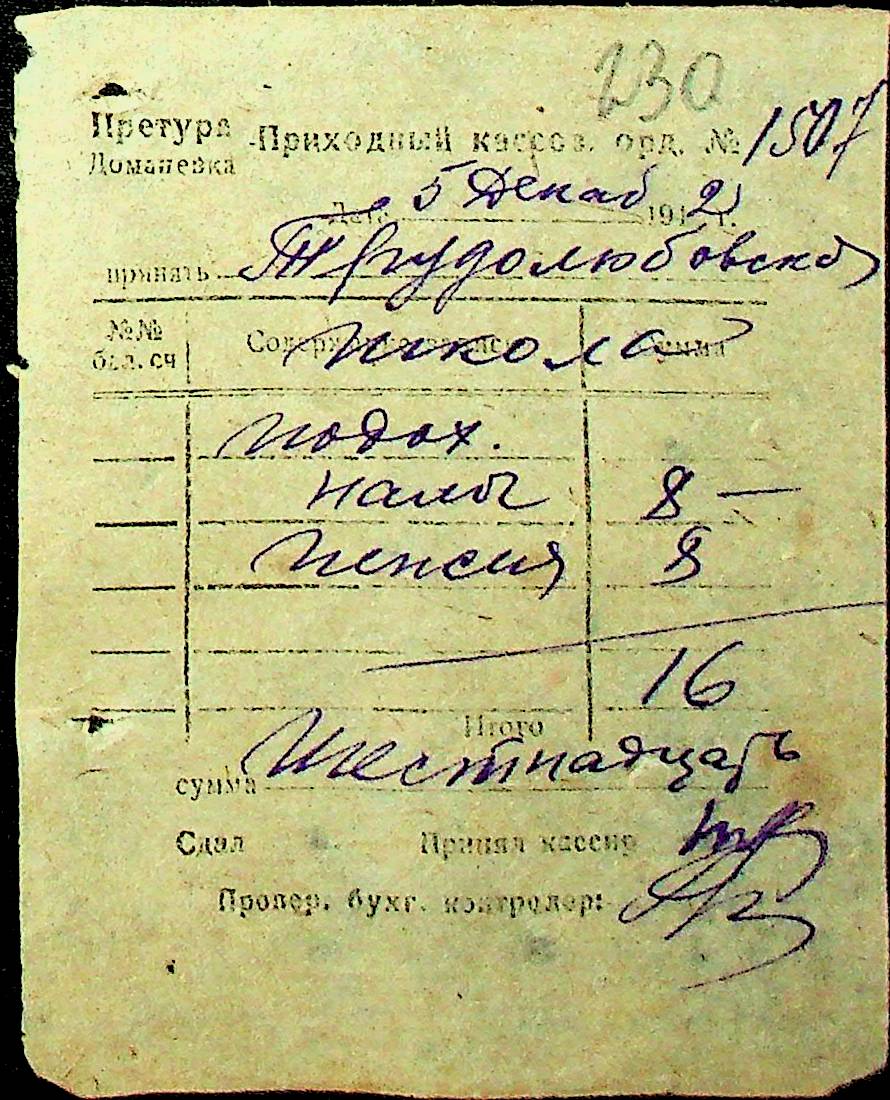 230
Претура
Доманевка
Приходный кассов. орд. № 1507
Дата 5 Декаб 194 2 г.
принять Трудолюбовска
№№ бал. сч Содержание Сумма
школа
подох.
налог 8 —
Пенсия 8
16
Итого
сумма Шестнадцать
Сдал Принял кассир
Провер. бухг. контролер: